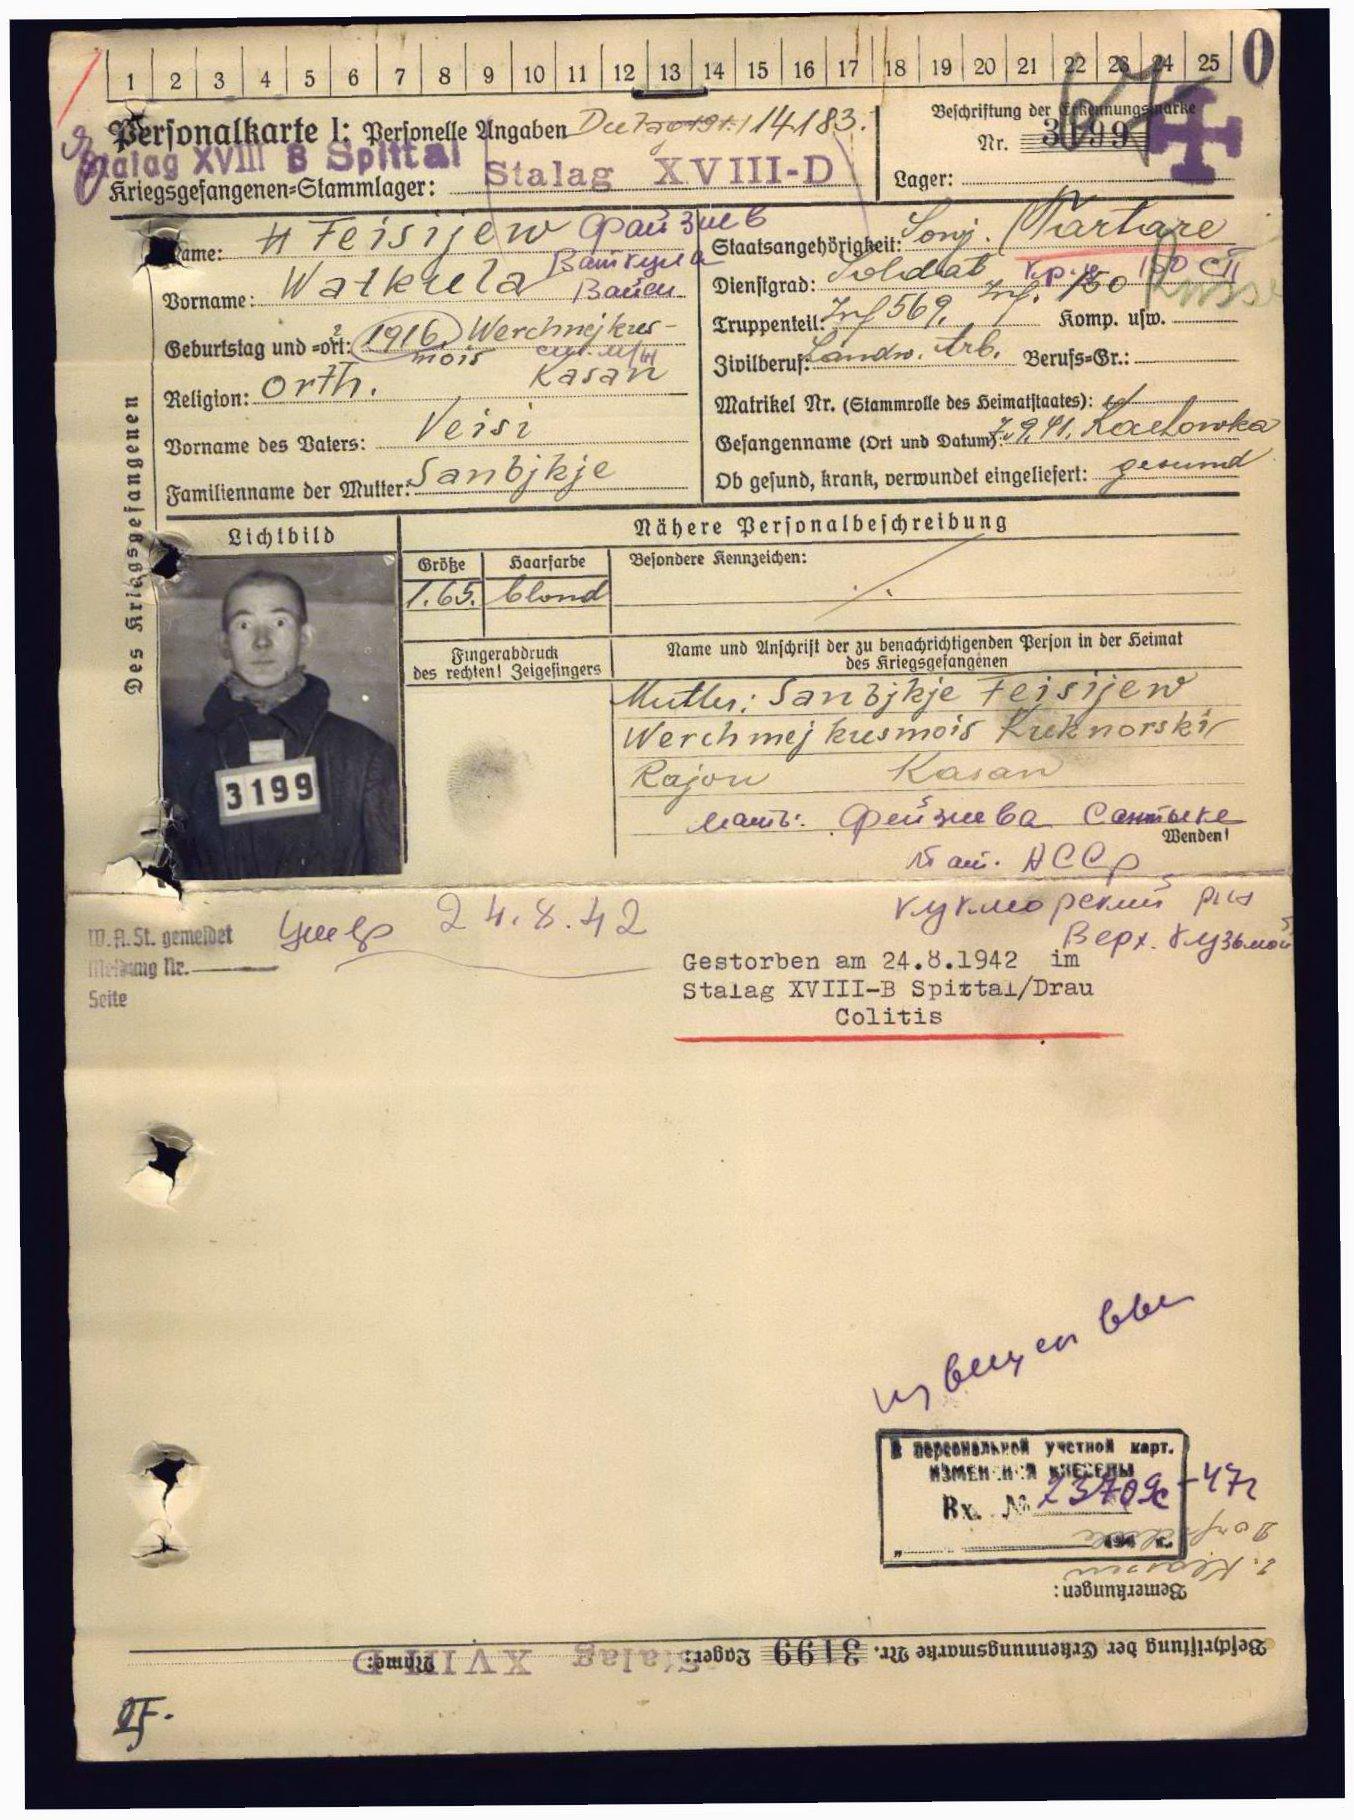 1 2 3 4 5 6 7 8 9 10 11 12 13 14 15 16 17 18 19 20 21 22 23 24 25
0
Personalkarte I: Personelle Angaben
14183.
Beschriftung der Erkennungsmarke
Nr. 3199
Stalag XVIII B Spittal
Kriegsgefangenen-Stammlager: Stalag XVIII-D
Lager:
Des Kriegsgefangenen
Name: Feisijew Файзиев
Vorname: Watkula Ваткула
Geburtstag und -ort: 1916. Werchnejkus-
mois Kasan
Religion: Orth.
Vorname des Vaters: Veisi
Familienname der Mutter: Sanbjkje
Staatsangehörigkeit: Sowj. (Tartare
Dienstgrad: Soldat
Truppenteil: Inf 569, Inf. 150 Komp. usw.
Zivilberuf: Landw. Arb. Berufs-Gr.:
Matrikel Nr. (Stammrolle des Heimatstaates):
Gefangenname (Ort und Datum): 9.41. Kachowka
Ob gesund, krank, verwundet eingeliefert: gesund
Lichtbild
Nähere Personalbeschreibung
Größe Haarfarbe Besondere Kennzeichen:
1.65. blond
Fingerabdruck
des rechten! Zeigefingers
Name und Anschrift der zu benachrichtigenden Person in der Heimat
des Kriegsgefangenen
Mutter: Sanbjkje Fejsijew
Werchnejkusmois Kuknorski
Rajon Kasan
3199
мать: Файзиева
Wenden!
Тат. АССР
Кукморский р-н
Верх. Кузьмой
W.A.St. gemeldet
Meldung Nr.
Seite
умер 24.8.42
Gestorben am 24.8.1942 im
Stalag XVIII-B Spittal/Drau
Colitis
В персональной учетной карт.
ИЗМЕНЕНИЯ ВНЕСЕНЫ
Вх. № 23709с-47г
194 г.
Bemerkungen:
Beschriftung der Erkennungsmarke Nr. 3199 Lager: Stalag XVIII D Name: